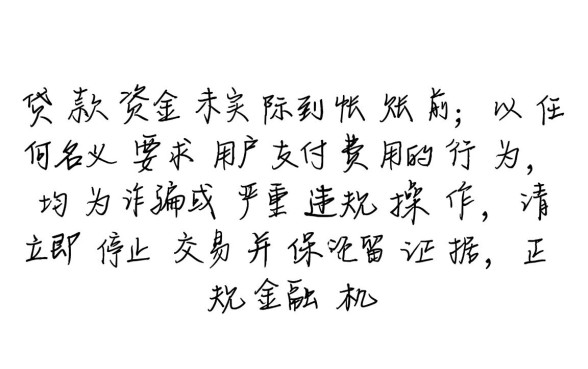 贷款资金未实际到帐账前；以任
何名义要求用户支付费用的行为，
均为诈骗或严重违规操作，清
立即停止交易并保留证据，正
规金融机